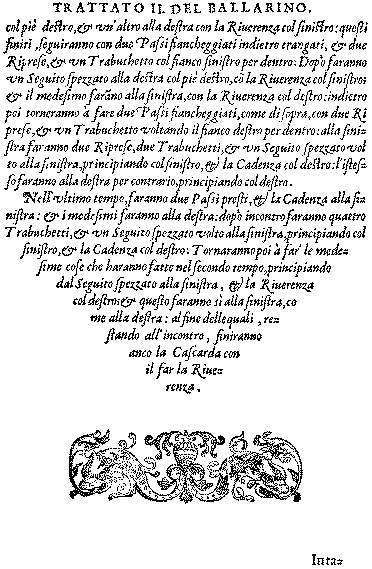 TRATTATO II. DEL BALLARINO.
col piè destro, & un'altro alla destra con la Riuerenza col sinistro: questi
finiti, seguiranno con due Passi fiancheggiati indietro erangati, & due
Riprese, & un Trabuchetto col fianco sinistro per dentro: Dopò faranno
un Seguito spezzato alla destra col piè destro, cõ la Riuerenza col sinistro:
& il medesimo farãno alla sinistra, con la Riuerenza col destro: indietro
poi torneranno à fare due Passi fiancheggiati, come di sopra, con due Ri
prese, & un Trabuchetto voltando il fianco destro per dentro: alla sini=
stra faranno due Riprese, due Trabuchetti, & un Seguito spezzato vol
to alla sinistra, principiando col sinistro, & la Cadenza col destro: l'istes=
so faranno alla destra per contrario, principiando col destro.
Nell'ultimo tempo, faranno due Passi presti, & la Cadenza alla si=
nistra: & i medesimi faranno alla destra: dopò incontro faranno quattro
Trabuchetti, & un Seguito spezzato volto alla sinistra, principiando col
sinistro, & la Cadenza col destro: Torneranno poi à far' le mede=
sime cose che haranno fatto nel secondo tempo, principiando
dal Seguito spezzato alla sinistra, & la Riuerenza
col destro: & questo faranno sì alla sinistra, co
me alla destra: al fine delle quali, re=
stando all'incontro, finiranno
anco la Cascarda con
il far la Riue=
renza.
Inta=